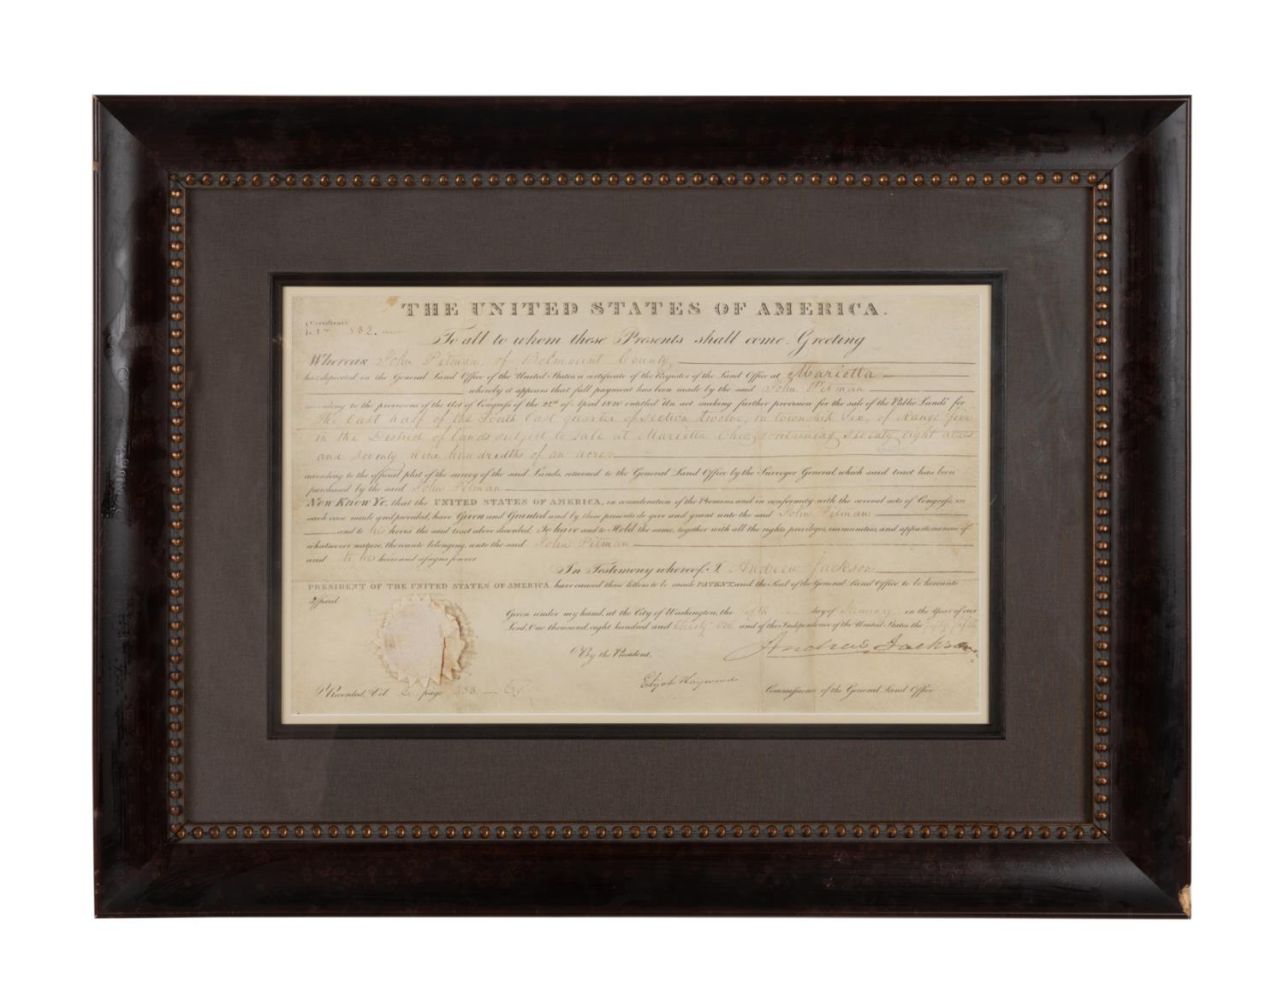 THE UNITED STATES OF AMERICA.
Certificate
No. 832
To all to whom these Presents shall come, Greeting
Whereas John Pitman, of Belmount County,
has deposited in the General Land Office of the United States, a certificate of the Register of the Land Office at Marietta
whereby it appears that full payment has been made by the said John Pitman
according to the provisions of the Act of Congress of the 24th of April 1820 entitled "An act making further provision for the sale of the Public Lands" for
the East half of the South East quarter of section twelve, in township Six, of Range five
in the District of lands subject to sale at Marietta Ohio, containing seventy eight acres
and seventy nine hundredths of an acre
according to the official plat of the survey of the said Lands, returned to the General Land Office by the Surveyor General, which said tract has been
purchased by the said John Pitman
Now Know Ye, that the UNITED STATES OF AMERICA, in consideration of the Premises, and in conformity with the several acts of Congress, in
such case made and provided, have Given and Granted and by these presents do give and grant unto the said John Pitman
and to his heirs the said tract above described, To have and to Hold the same, together with all the rights, privileges, immunities, and appurtenances of
whatsoever nature, thereunto belonging, unto the said John Pitman
and to his heirs and assigns forever
In Testimony whereof, I Andrew Jackson
PRESIDENT OF THE UNITED STATES OF AMERICA have caused these letters to be made PATENT, and the Seal of the General Land Office to be hereunto
affixed
Given under my hand, at the City of Washington, the day of in the Year of our
Lord, One thousand, eight hundred and thirty one and of the Independence of the United States the fifty fifth
By the President, Andrew Jackson
Elijah Hayward Commissioner of the General Land Office
Recorded, Vol. page